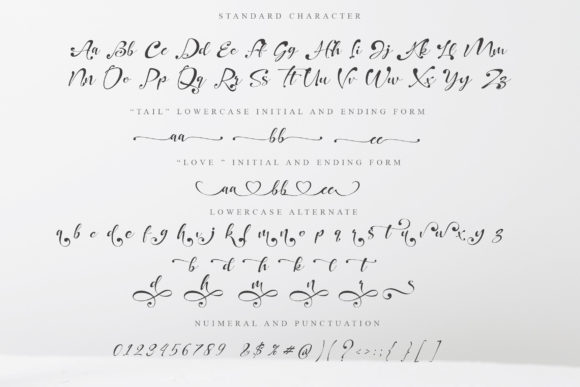 STANDARD CHARACTER
Aa Bb Cc Dd Ee Ff Gg Hh Ii Jj Kk Ll Mm
Nn Oo Pp Qq Rr Ss Tt Uu Vv Ww Xx Yy Zz
“TAIL” LOWERCASE INITIAL AND ENDING FORM
aa bb cc
“LOVE ” INITIAL AND ENDING FORM
aa bb cc
LOWERCASE ALTERNATE
a b c d e f g h i j k l m n o p q r s t u v w x y z
b d h k l t
d h m n r s
NUIMERAL AND PUNCTUATION
0123456789 &$%#@)(?<>:;{}[]